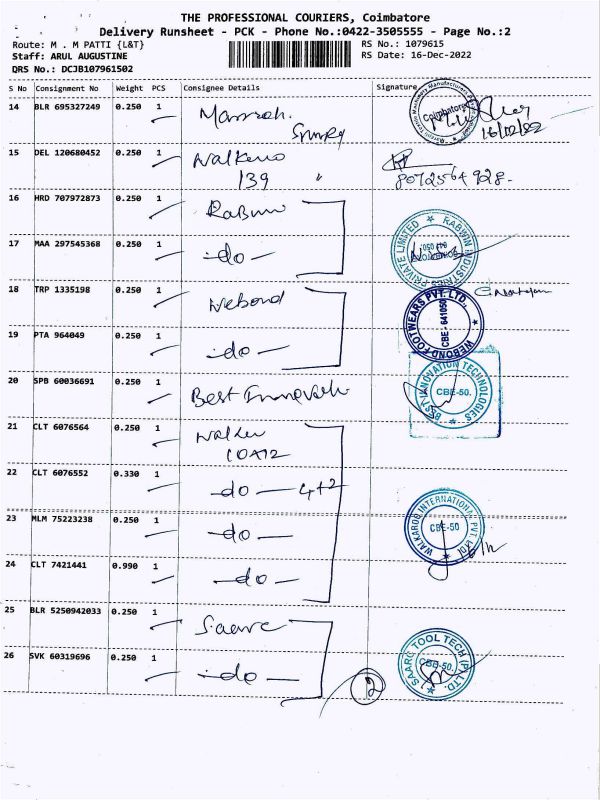 THE PROFESSIONAL COURIERS, Coimbatore
Delivery Runsheet - PCK - Phone No.:0422-3505555 - Page No.:2
Route: M . M PATTI {L&T} RS No.: 1079615
Staff: ARUL AUGUSTINE RS Date: 16-Dec-2022
QRS No.: DCJB107961502
S No Consignment No Weight PCS Consignee Details Signature
14 BLR 695327249 0.250 1
Coimbatore
16/12/22
15 DEL 120680452 0.250 1
139 "
8072564928-
16 HRD 707972873 0.250 1
RABWIN INDUSTRIES PRIVATE LIMITED
17 MAA 297545368 0.250 1 -do-
18 TRP 1335198 0.250 1 Webond
WEBOND FOOTWEARS PVT. LTD.
CBE - 641050
19 PTA 964049 0.250 1 -do-
20 SPB 60036691 0.250 1 Best
BEST INNOVATION TECHNOLOGIES
CBE-50.
21 CLT 6076564 0.250 1
22 CLT 6076552 0.330 1 -do- 4+2
23 MLM 75223238 0.250 1 -do-
WALKAROO INTERNATIONAL PVT. LTD.
CBE-50
24 CLT 7421441 0.990 1 -do-
25 BLR 5250942033 0.250 1 Saarc
26 SVK 60319696 0.250 1 -do-
SAARC TOOL TECH (P) LTD.
CBE-50.
2